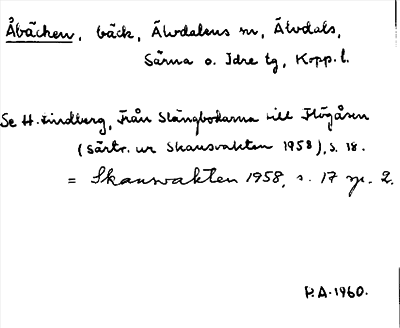 Åbäcken, bäck, Älvdalens sn, Älvdals,
Särna o. Idre tg, Kopp. l.
Se H. Lindberg, Från Slängbodarna till Flögåsen
(särtr. ur Skansvakten 1958), s. 18.
= Skansvakten 1958, s. 17 sp. 2.
P.A. 1960.